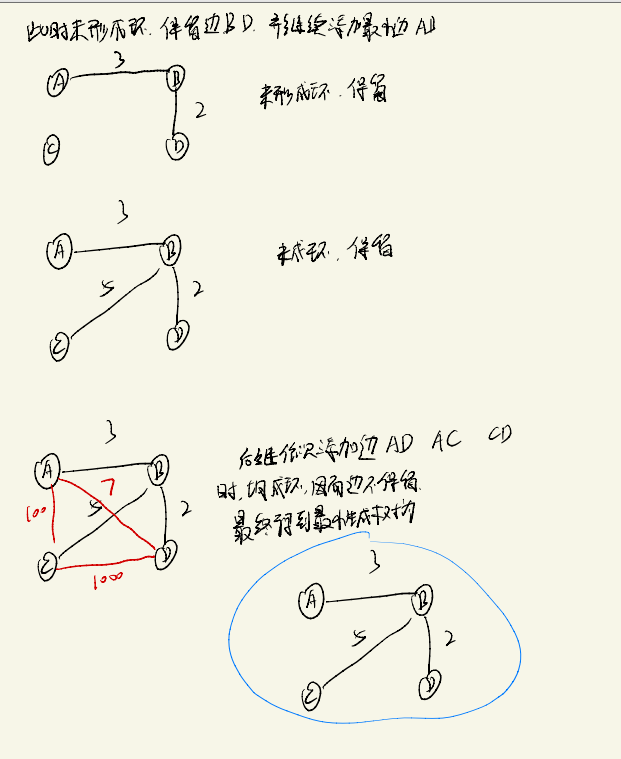 此时未形成环. 保留边BD. 并继续添加最小边AB
3
A B
2
未形成环. 保留
C D
3
A B
未成环. 保留
5 2
C D
3
后继依次添加边AD AC CD
A B
7
时, 均成环, 因而边不保留.
100 5 2
最终得到最小生成树为
C D
1000
3
A B
5 2
C D